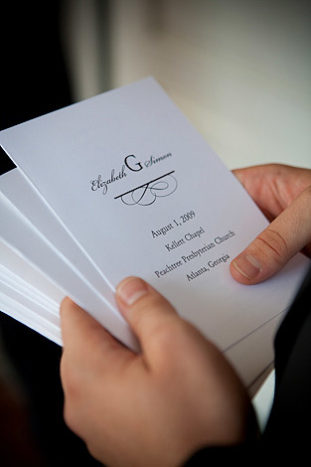 Elizabeth G Simon
August 1, 2009
Kellett Chapel
Peachtree Presbyterian Church
Atlanta, Georgia